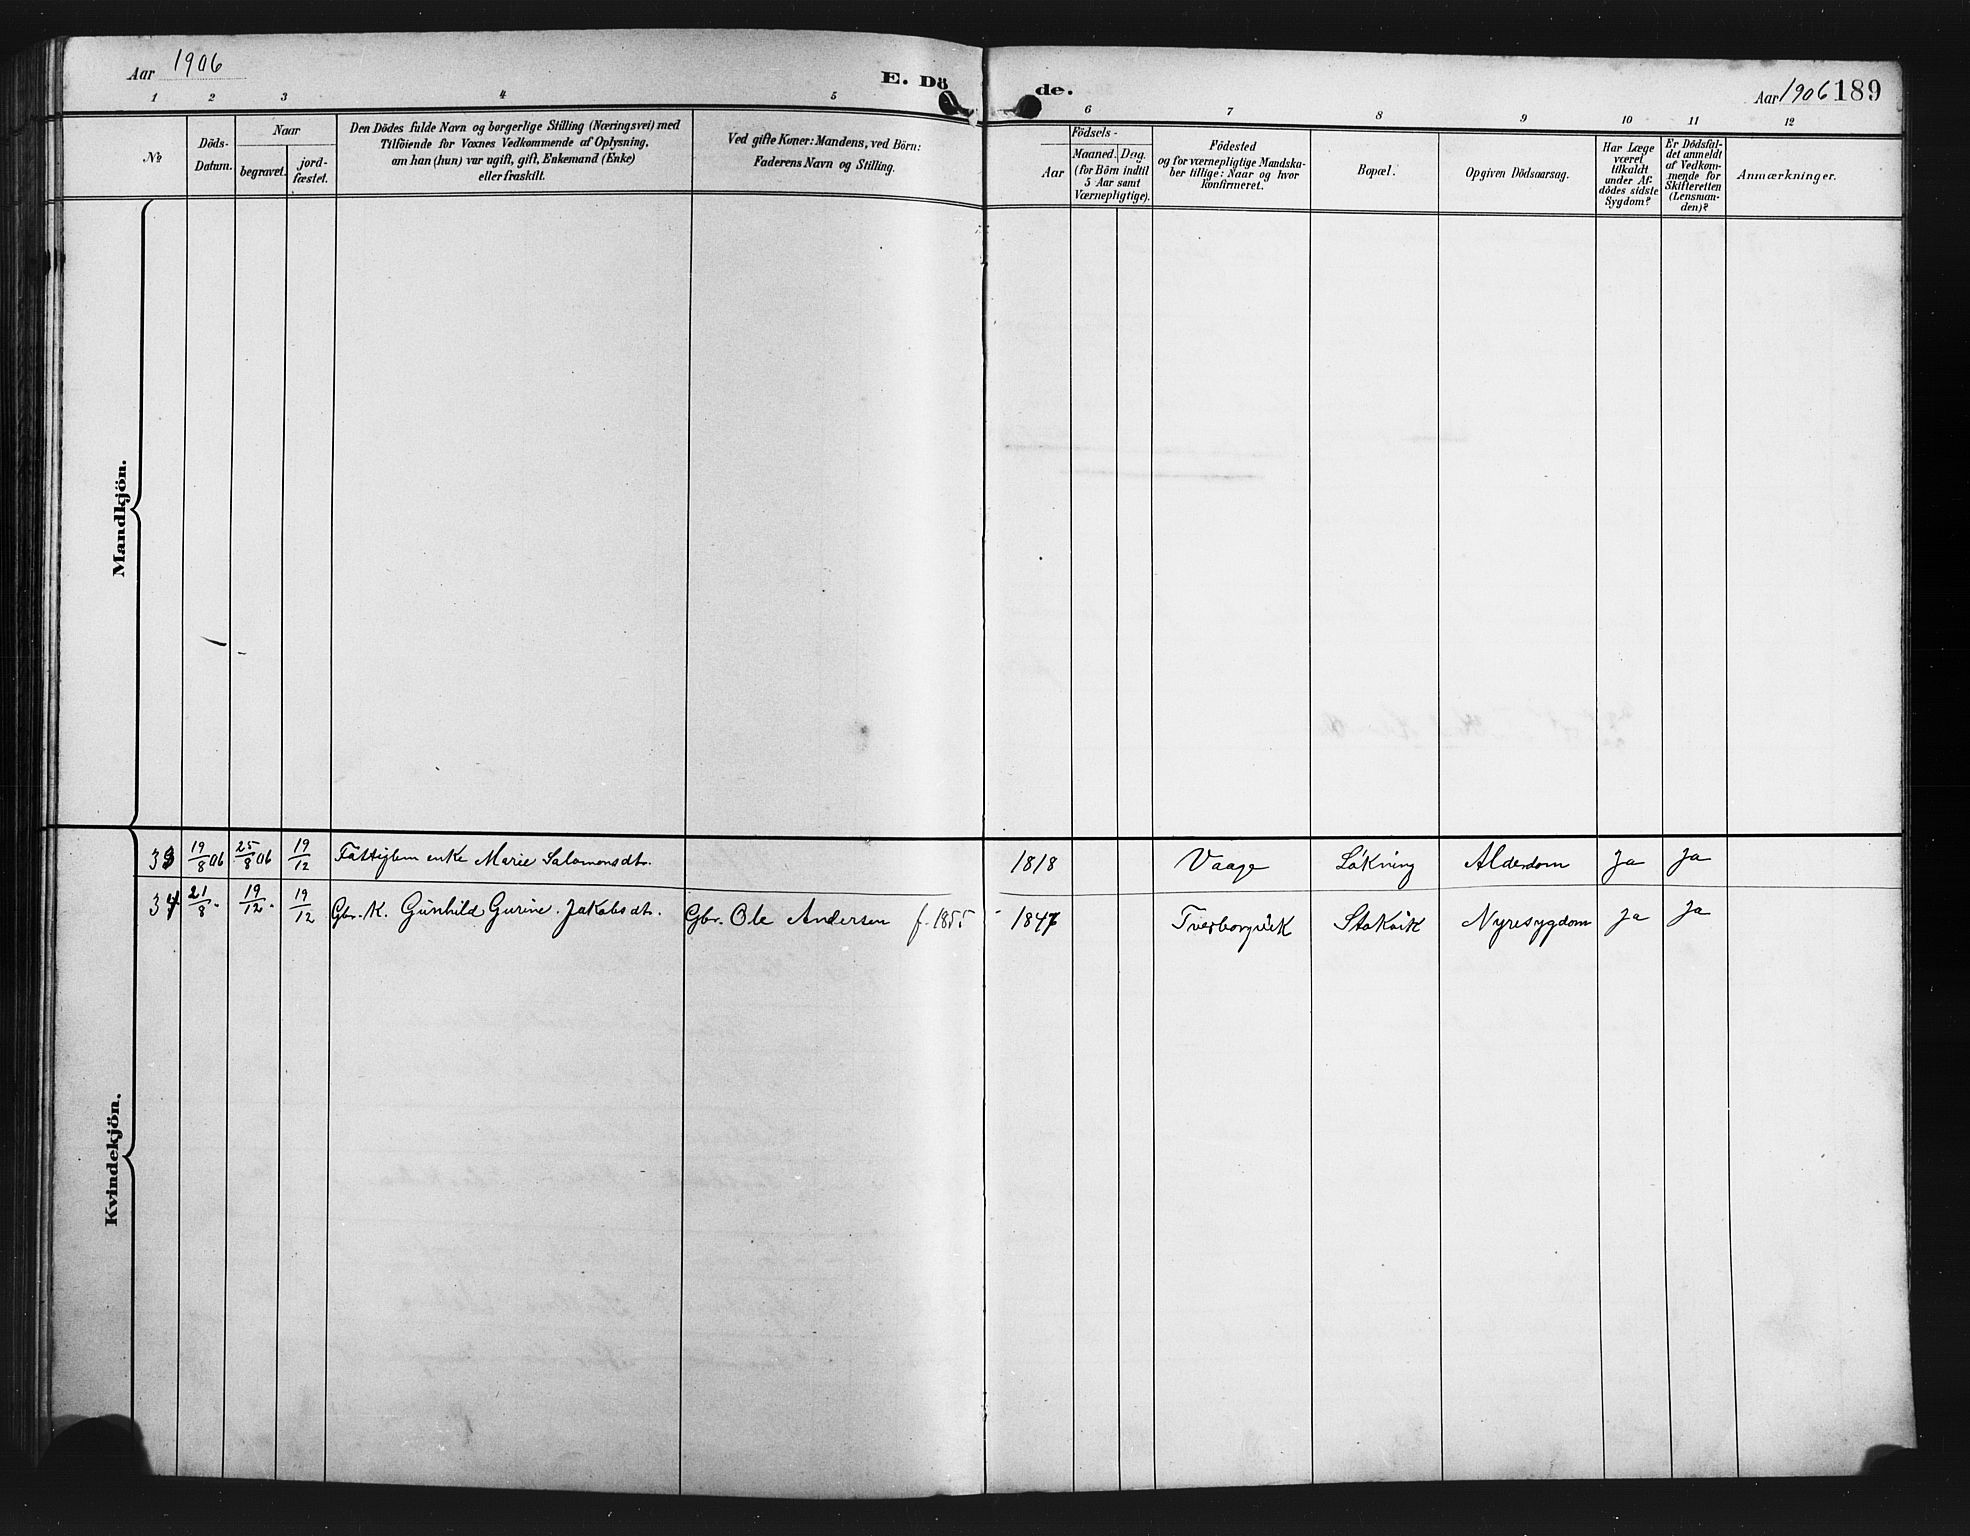 Aar 1906
E. Dö
de.
Aar 1906 189
1 2 3 4 5 6 7 8 9 10 11 12
№
Döds-
Datum.
Naar
begravet.
jord-
fæstet.
Den Dödes fulde Navn og borgerlige Stilling (Næringsvei) med
Tilföiende for Voxnes Vedkommende af Oplysning,
om han (hun) var ugift, gift, Enkemand (Enke)
eller fraskilt.
Ved gifte Koner: Mandens, ved Börn:
Faderens Navn og Stilling.
Födsels-
Aar
Maaned. Dag.
(for Börn indtil
5 Aar samt
Værnepligtige).
Födested
og for værnepligtige Mandska-
ber tillige: Naar og hvor
konfirmeret.
Bopæl.
Opgiven Dödsaarsag.
Har Læge
været
tilkaldt
under Af-
dödes sidste
Sygdom?
Er Dödsfal-
det anmeldt
af Vedkom-
mende for
Skifteretten
(Lensman-
den)?
Anmærkninger.
Mandkjön.
Kvindekjön.
33 19/8 06 25/8 06 19/12 Fattiglem enke Marie Salomonsdtr. 1818 Vaage Løkning Alderdom Ja Ja
34 21/8 - 19/12 - 19/12 Gbr. K. Gunhild Gurine Jakobsdtr. Gbr. Ole Andersen f. 1855 - 1847 Tverborgvik Stokvik Nyresygdom Ja Ja